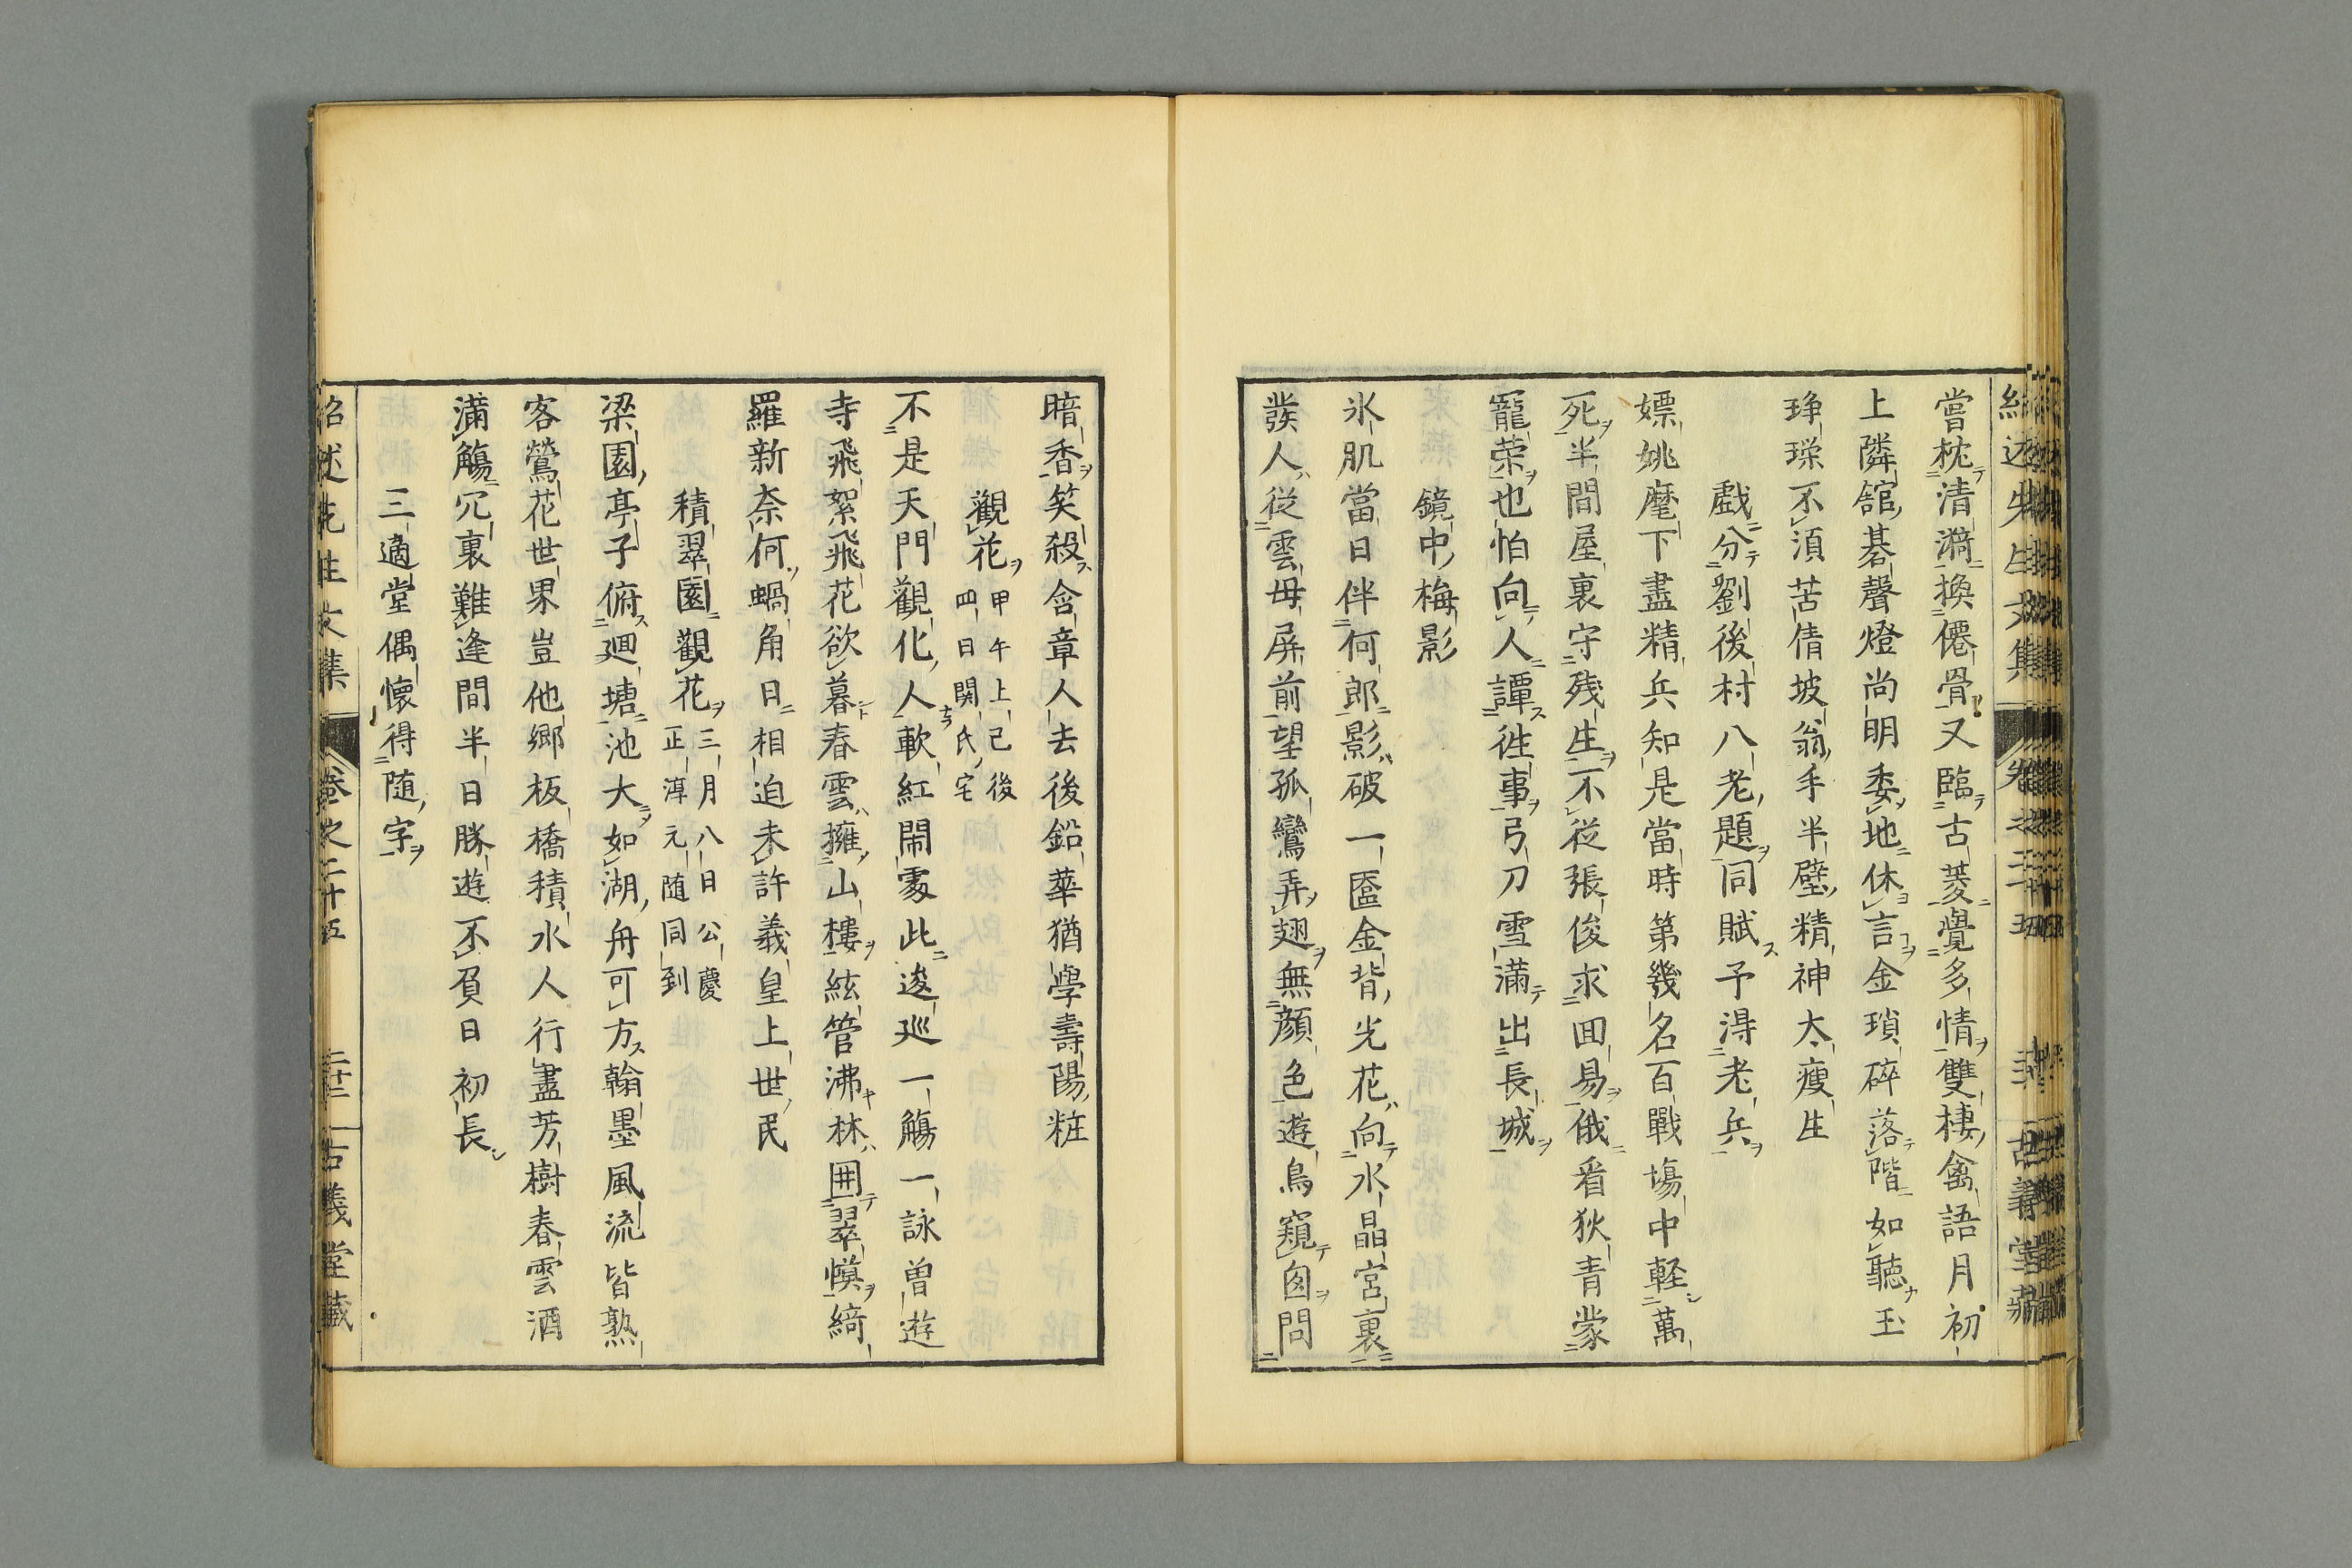 嘗枕清漪換僊骨又臨古菱覺多情雙棲禽語月初
上隣舘碁聲燈尚明委地休言金瑣碎落階如聽玉
琤瑽不須苦倩坡翁手半壁精神太瘦生
戯分劉後村八老題同賦予淂老兵
嫖姚麾下盡精兵知是當時第幾名百戰場中軽萬
死半間屋裏守残生不從張俊求回易俄看狄青蒙
寵荣也怕向人譚徃事弓刀雪滿出長城
鏡中梅影
氷肌當日伴何郎影破一匳金背光花向水晶宮裏
發人從雲母屏前望孤鸞弄翅無顔色遊鳥窺囱問
暗香笑殺含章人去後鉛華猶學壽陽粧
觀花 甲午上巳後
四日関氏宅
不是天門觀化人軟紅閙處此逡巡一觴一詠曽遊
寺飛絮飛花欲暮春雲擁山樓絃管沸林囲翠幙綺
羅新奈何蝸角日相迫未許義皇上世民
積翠園觀花 三月八日公慶
正淳元随同到
梁園亭子俯廻塘池大如湖舟可方翰墨風流皆熟
客鶯花世果豈他郷板橋積水人行盡芳樹春雲酒
滿觴冗裏難逢間半日勝遊不負日初長
三適堂偶懐得随字
紹述先生文集 卷之二十五 二十二 古義堂藏